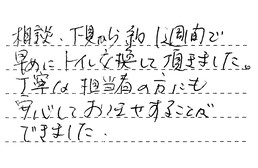 相談、下見から約1週間で
早めにトイレ交換して頂きました。
丁寧な担当者の方にも
安心してお任せすることが
できました.